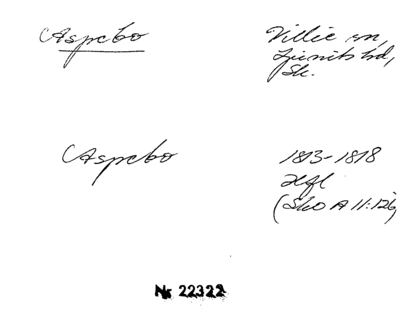 Aspebo
Villie sn,
Ljunits hd,
Sk.
Aspebo
1813-1818
(SkO A 11:126
Nr 22322